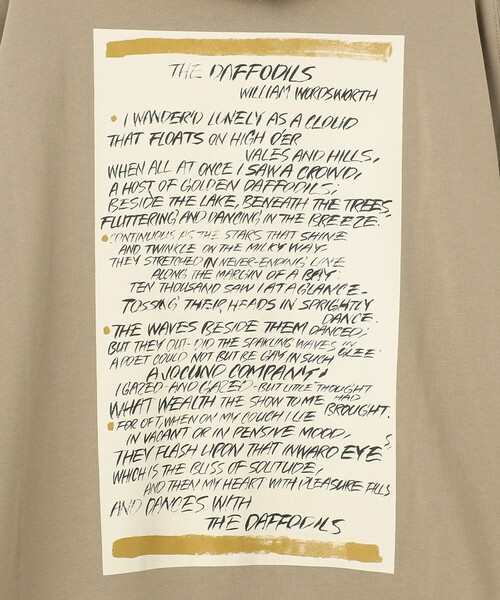 THE DAFFODILS
WILLIAM WORDSWORTH
I WANDER'D LONELY AS A CLOUD
THAT FLOATS ON HIGH O'ER
VALES AND HILLS,
WHEN ALL AT ONCE I SAW A CROWD,
A HOST OF GOLDEN DAFFODILS;
BESIDE THE LAKE, BENEATH THE TREES,
FLUTTERING AND DANCING IN THE BREEZE.
CONTINUOUS AS THE STARS THAT SHINE
AND TWINKLE ON THE MILKY WAY
THEY STRETCHED IN NEVER-ENDING LINE
ALONG THE MARGIN OF A BAY:
TEN THOUSAND SAW I AT A GLANCE-
TOSSING THEIR HEADS IN SPRIGHTLY
DANCE.
THE WAVES BESIDE THEM DANCED;
BUT THEY OUT-DID THE SPARKLING WAVES IN
GLEE:
A POET COULD NOT BE GAY IN SUCH
A JOCUND COMPANY:
I GAZED-AND GAZED-BUT LITTLE THOUGHT
WHAT WEALTH THE SHOW TO ME HAD
BROUGHT.
FOR OFT, WHEN ON MY COUCH I LIE
IN VACANT OR IN PENSIVE MOOD,
THEY FLASH UPON THAT INWARD EYE
WHICH IS THE BLISS OF SOLITUDE;
AND THEN MY HEART WITH PLEASURE FILLS
AND DANCES WITH
THE DAFFODILS